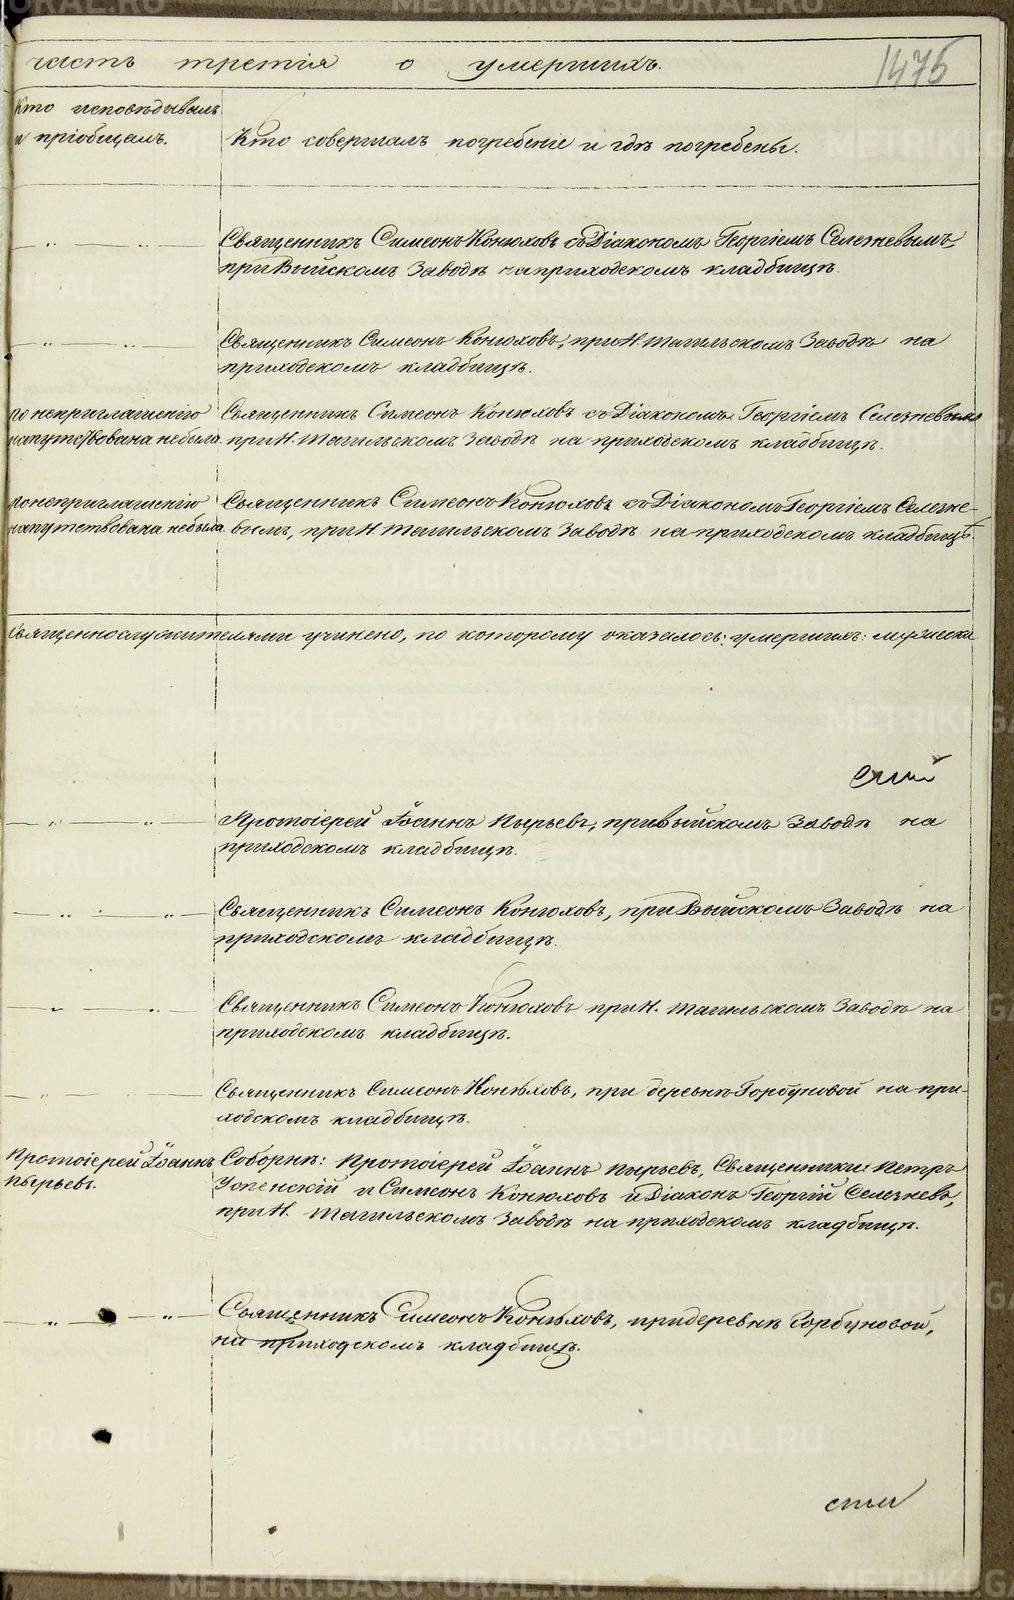 часть третія о умершихъ.
1475
Кто исповѣдывалъ
и пріобщалъ.
Кто совершалъ погребеніе и гдѣ погребены.
Священникъ Симеонъ Конюховъ съ Діакономъ Георгіемъ Селезневымъ,
при Выйскомъ Заводѣ на приходскомъ кладбищѣ.
Священникъ Симеонъ Конюховъ, при Н. Тагильскомъ Заводѣ на
приходскомъ кладбищѣ.
по неприглашенію
напутствована небыла
Священникъ Симеонъ Конюховъ съ Діакономъ Георгіемъ Селезневымъ
при Н. Тагильскомъ Заводѣ на приходскомъ кладбищѣ.
по неприглашенію
напутствована небыла
Священникъ Симеонъ Конюховъ съ Діакономъ Георгіемъ Селезне-
вымъ, при Н. Тагильскомъ Заводѣ на приходскомъ кладбищѣ.
Священнослужителями учинено, по которому оказалось: умершихъ: мужеска
Протоіерей Іоаннъ Пырьевъ, при Выйскомъ Заводѣ на
приходскомъ кладбищѣ.
Священникъ Симеонъ Конюховъ, при Выйскомъ Заводѣ на
приходскомъ кладбищѣ.
Священникъ Симеонъ Конюховъ при Н. Тагильскомъ Заводѣ на
приходскомъ кладбищѣ.
Священникъ Симеонъ Конюховъ, при деревнѣ Горбуновой на при-
ходскомъ кладбищѣ.
Протоіерей Іоаннъ
Пырьевъ.
Соборнѣ: Протоіерей Іоаннъ Пырьевъ, Священники: Петръ
Успенскій и Симеонъ Конюховъ и Діаконъ Георгій Селезневъ,
при Н. Тагильскомъ Заводѣ на приходскомъ кладбищѣ.
Священникъ Симеонъ Конюховъ, при деревнѣ Горбуновой,
на приходскомъ кладбищѣ.
METRIKI.GASO-URAL.RU